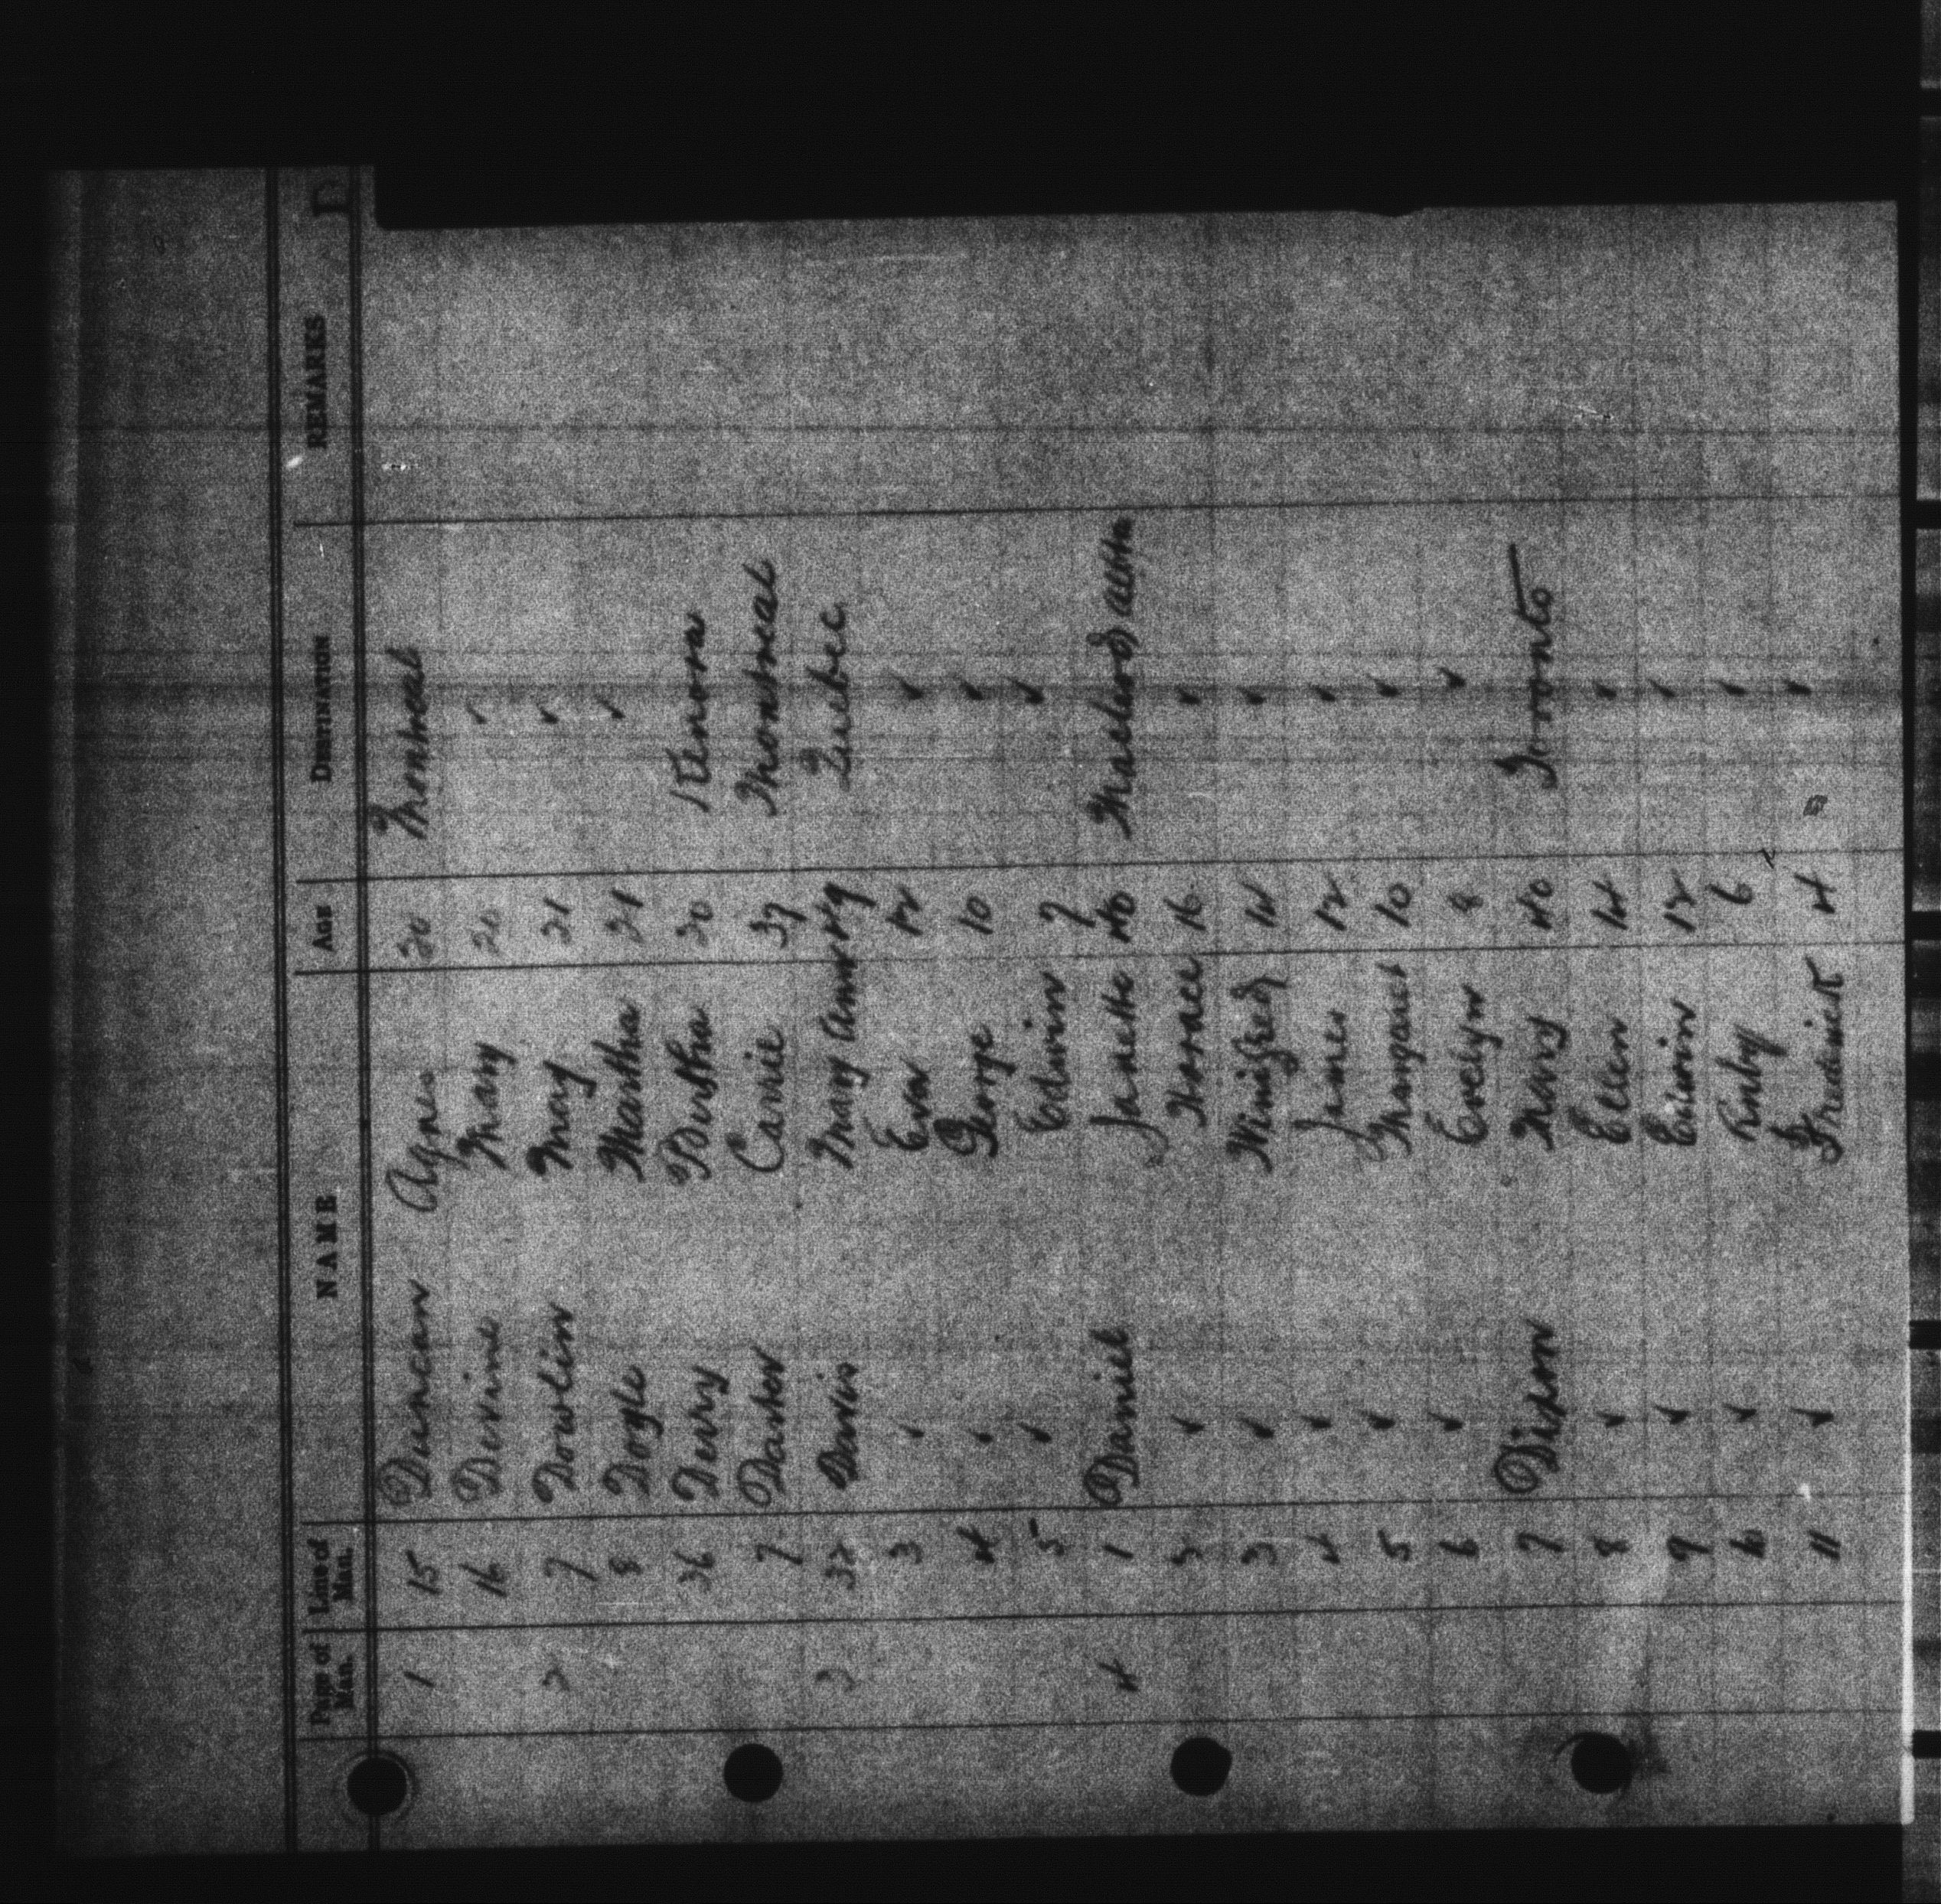 D
Page of Man. Line of Man. NAME AGE DESTINATION REMARKS
1 15 Duncan Agnes 20 Montreal
16 Devine Mary 20 ✓
2 7 Dowlin May 21 ✓
8 Doyle Martha 21 ✓
36 Derry Bertha 20 Kenora
7 Carrie 37 Montreal
3 32 Davis Mary Ann 49 Quebec
3 ✓ Eva 12 ✓
4 ✓ George 10 ✓
5 ✓ Edwin 7 ✓
4 1 Daniel 40
✓ Horace 16 ✓
3 ✓ Winifred 14 ✓
4 ✓ James 12 ✓
5 ✓ Margaret 10 ✓
6 ✓ Evelyn 8 ✓
7 Dixon Mary 40 Toronto
8 ✓ Ellen 14 ✓
9 ✓ Edwin 12 ✓
10 ✓ Ruby 6 ✓
11 ✓ Frederick 4 ✓